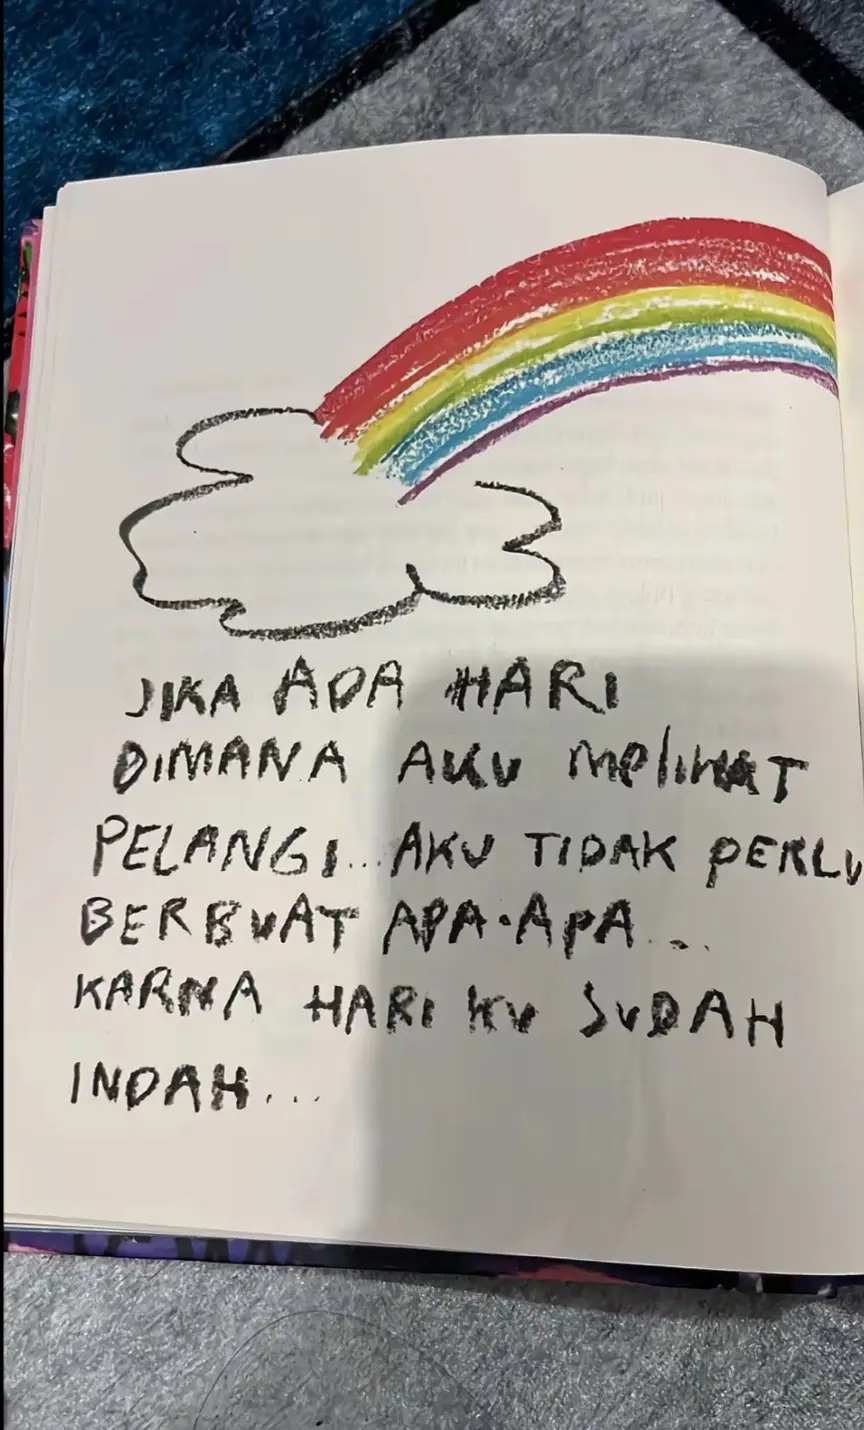 JIKA ADA HARI
DIMANA AKU MELIHAT
PELANGI... AKU TIDAK PERLU
BERBUAT APA-APA...
KARNA HARI KU SUDAH
INDAH...